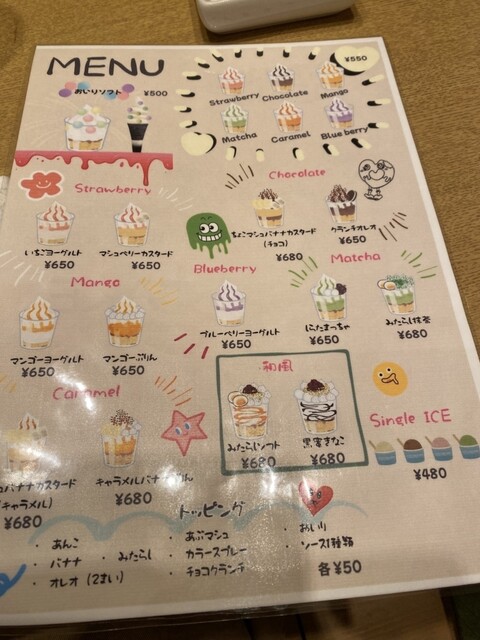 MENU
おいりソフト ¥500
¥550
Strawberry Chocolate Mango
Matcha Caramel Blueberry
Strawberry
いちごヨーグルト
¥650
マシュベリーカスタード
¥650
Chocolate
ちょこマシュバナナカスタード
(チョコ)
¥680
クランチオレオ
¥650
Mango
マンゴーヨーグルト
¥650
マンゴーぷりん
¥650
Blueberry
ブルーベリーヨーグルト
¥650
Matcha
しらたまっちゃ
¥650
みたらし抹茶
¥680
Caramel
バナナカスタード
(キャラメル)
¥680
キャラメルバナナぷりん
¥680
和風
みたらしソフト
¥680
黒蜜きなこ
¥680
Single ICE
¥480
トッピング
・あんこ
・バナナ
・みたらし
・オレオ (2まい)
・あぶマシュ
・カラースプレー
・チョコクランチ
・おいり
・ソース1種類
各¥50